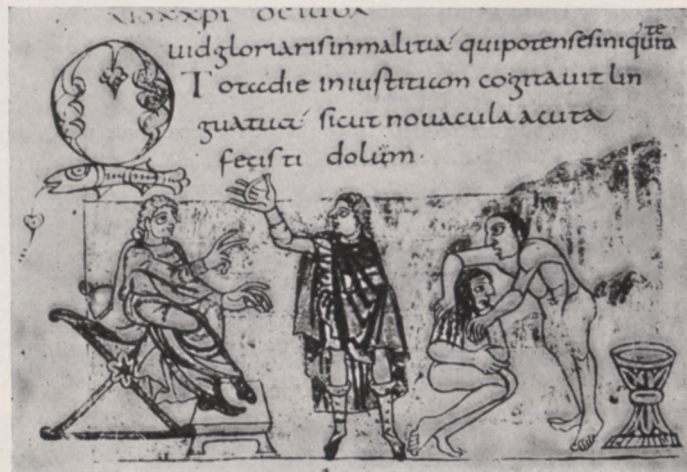 Quid gloriaris in malitia qui potens es iniquitate
Tota die iniustitiam cogitauit lin
gua tua sicut nouacula acuta
fecisti dolum.